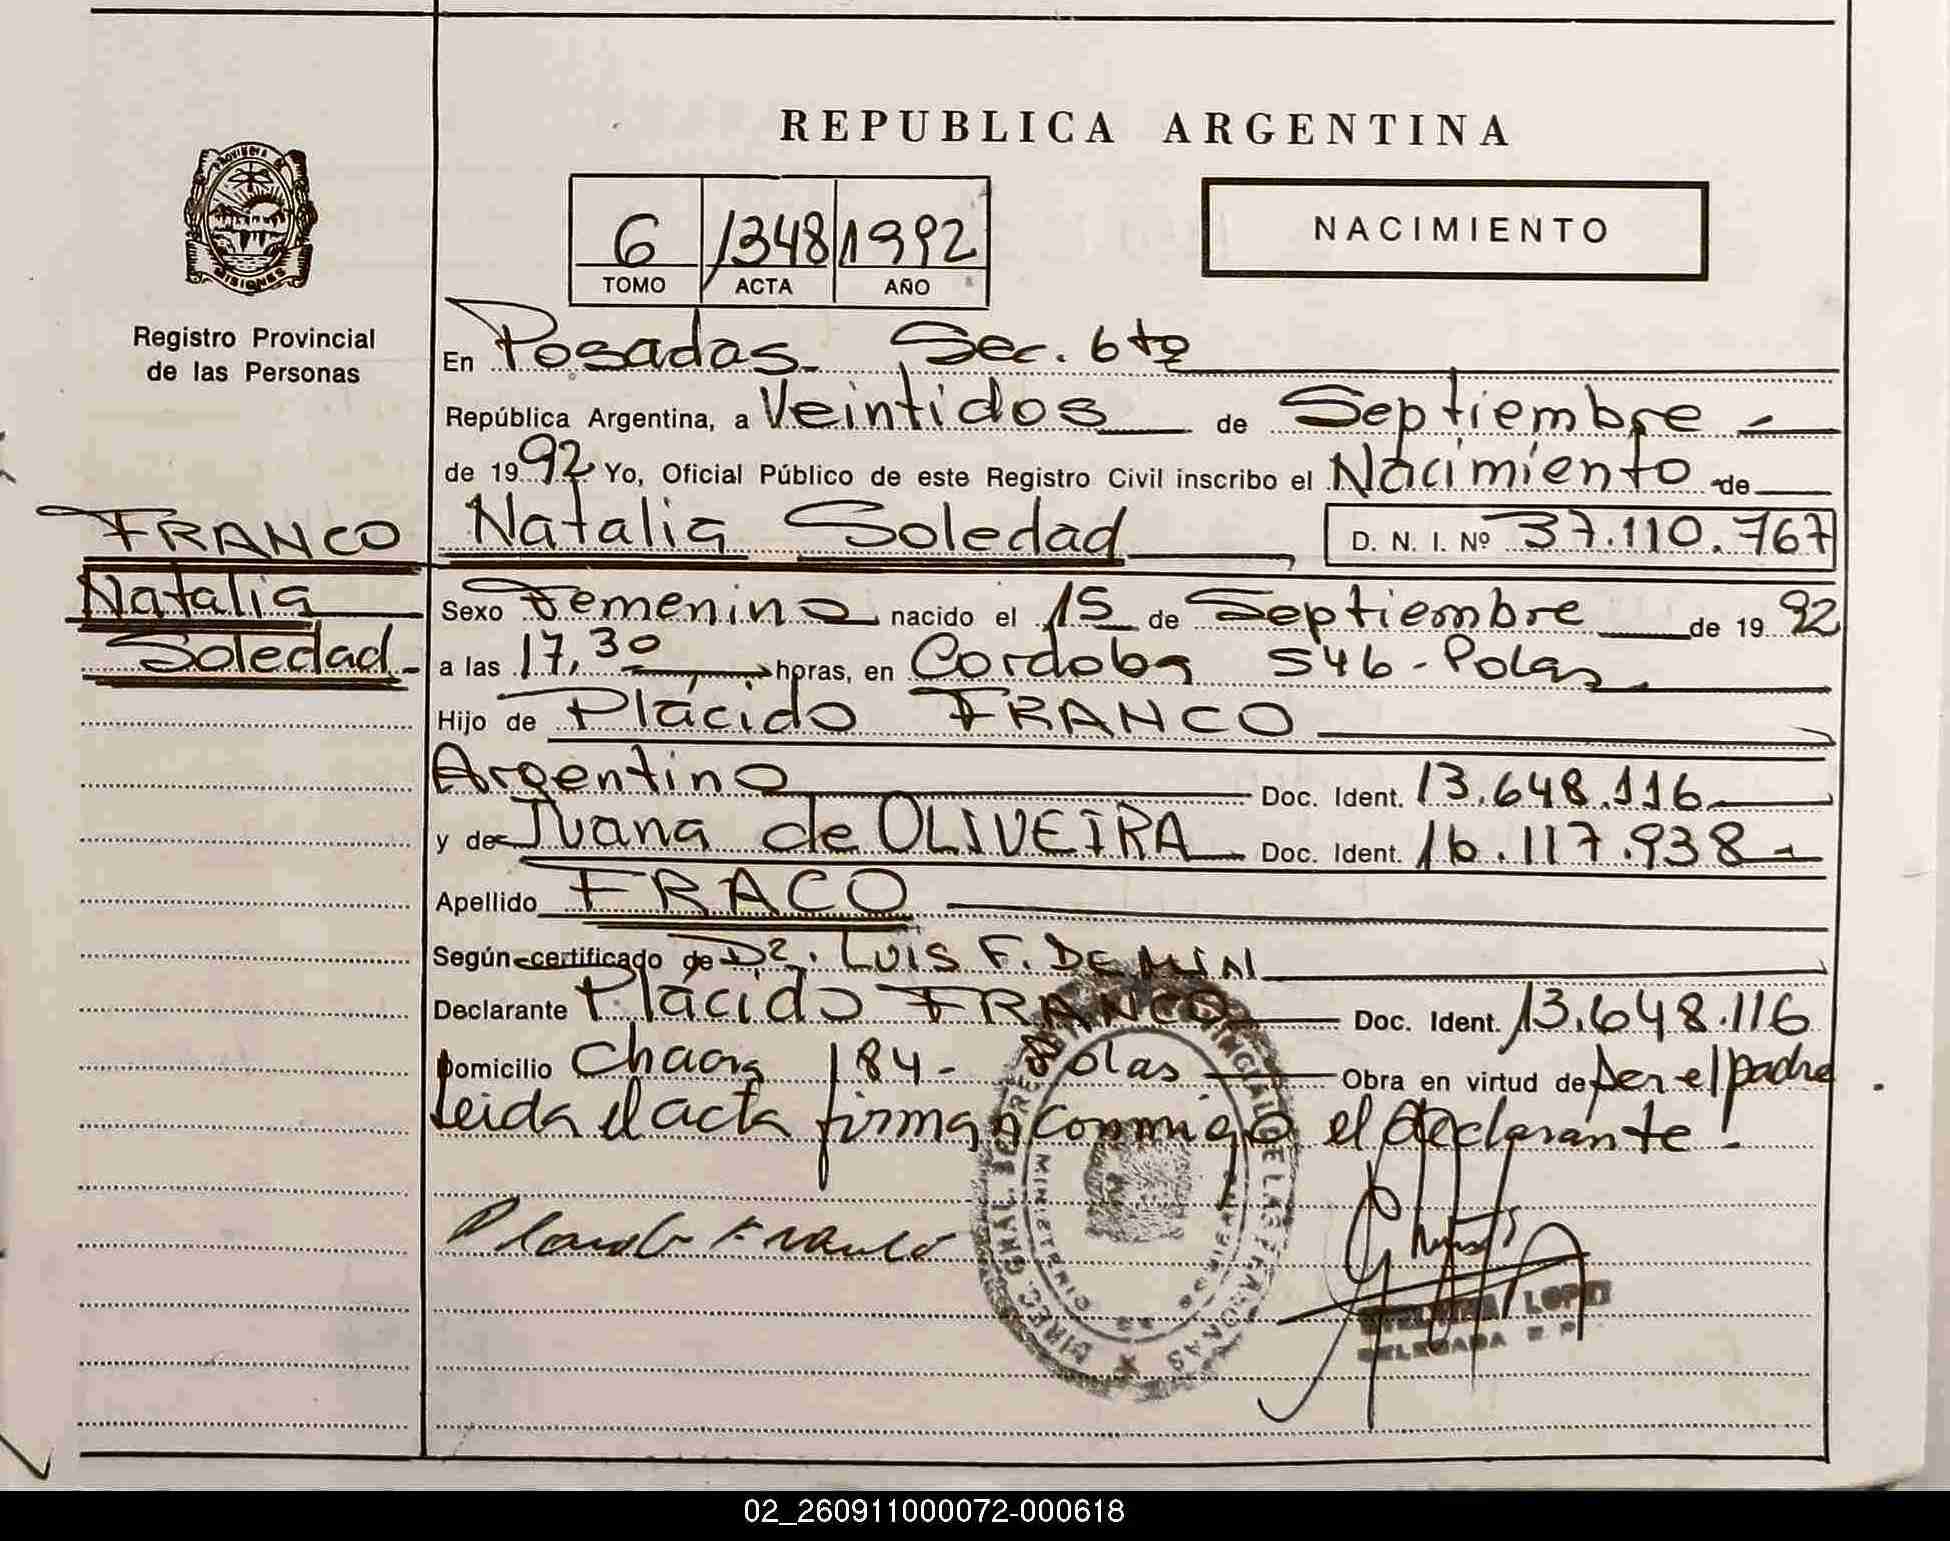 REPUBLICA ARGENTINA
PROVINCIA DE MISIONES
Registro Provincial
de las Personas
6 1348 1992
TOMO ACTA AÑO
NACIMIENTO
En Posadas - Sec. 6ta
República Argentina, a Veintidos de Septiembre
de 1992 Yo, Oficial Público de este Registro Civil inscribo el Nacimiento de
FRANCO
Natalia
Soledad
Natalia Soledad D. N. I. Nº 37.110.767
Sexo Femenino nacido el 15 de Septiembre de 1992
a las 17,30 horas, en Cordoba 546 - Pdas
Hijo de Plácido FRANCO
Argentino Doc. Ident. 13.648.116
y de Juana de OLIVEIRA Doc. Ident. 16.117.938
Apellido FRACO
Según certificado de Dr. LUIS F. DE
Declarante Plácido FRANCO Doc. Ident. 13.648.116
Domicilio 184 - Pdas Obra en virtud de ser el padre
Leida el acta firma conmigo el declarante
DIREC. GRAL. DE LAS PERSONAS
MINISTERIO
LOPEZ
DELEGADA
02_260911000072-000618